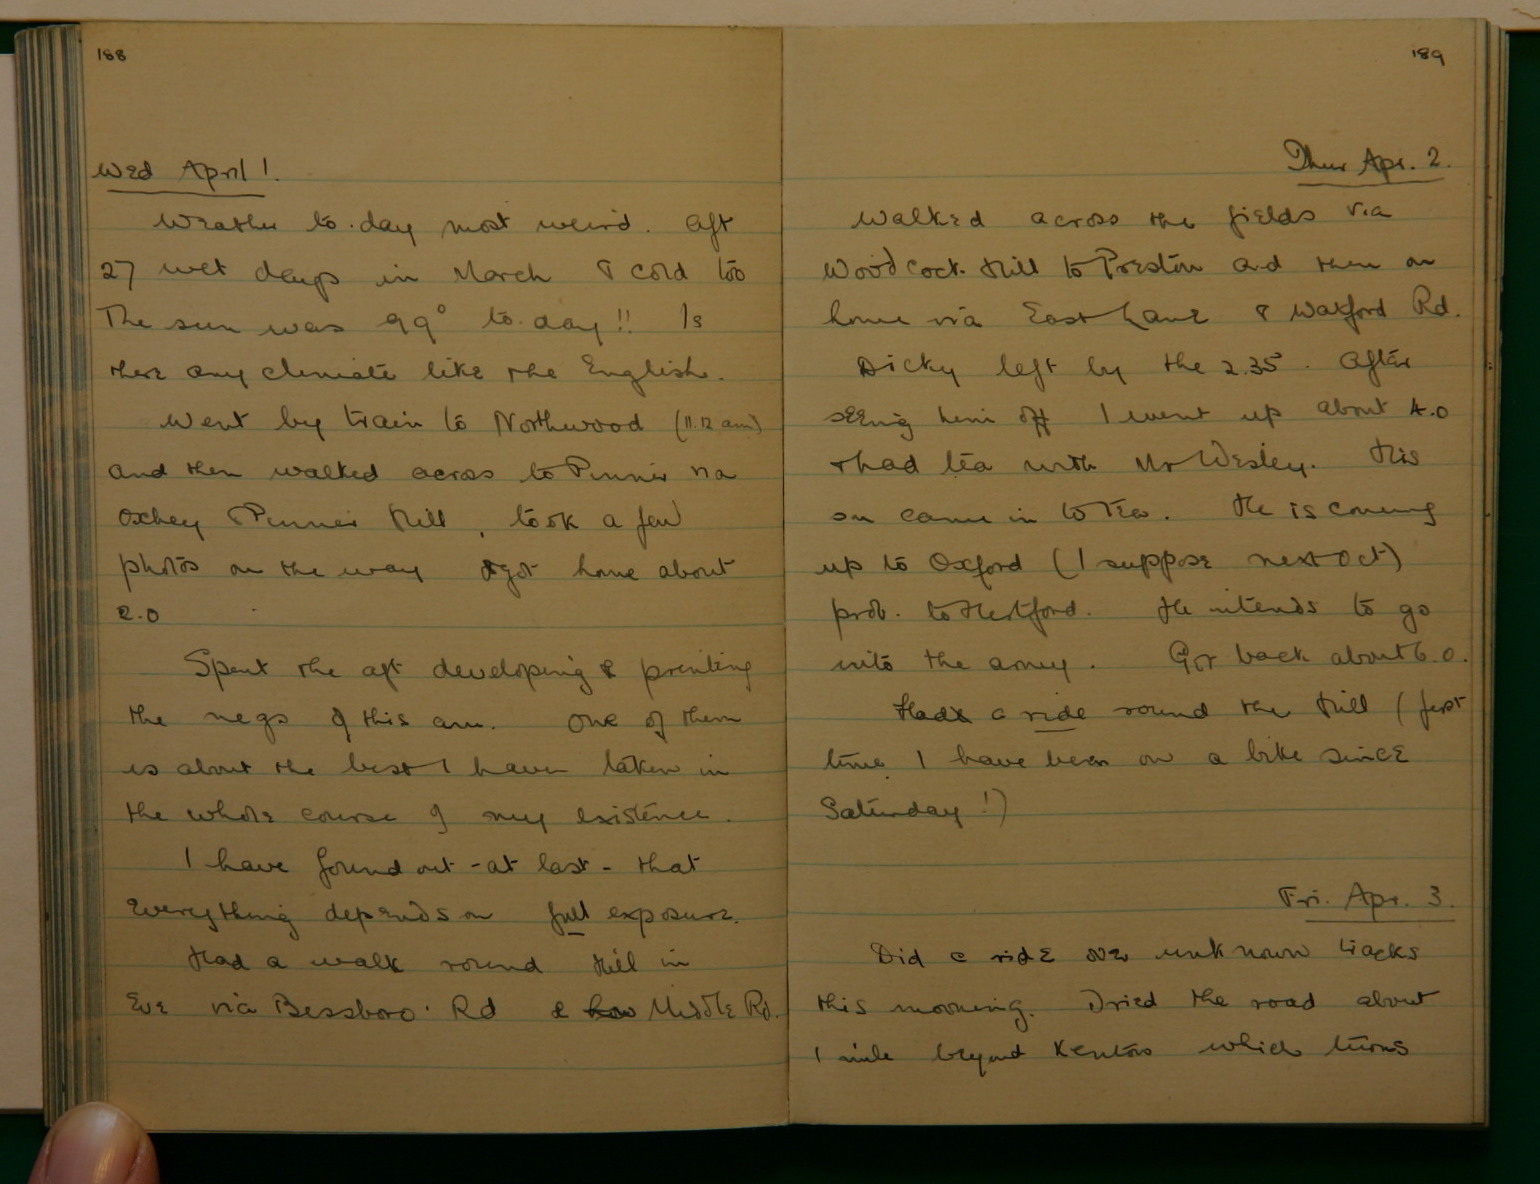 188
Wed April 1.
Weather to-day most weird. Aft
27 wet days in March & cold too
The sun was 99° to-day!! Is
there any climate like the English.
Went by train to Northwood (11.12 am)
and then walked across to Pinner via
Oxhey & Pinner Hill, took a few
photos on the way & got home about
2.0
Spent the aft developing & printing
the negs of this am. One of them
is about the best I have taken in
the whole course of my existence.
I have found out - at last - that
Everything depends on full exposure.
Had a walk round Hill in
Eve via Bessboro' Rd & Middle Rd.
189
Thur Apr. 2.
Walked across the fields via
Woodcock Hill to Preston and then on
home via East Lane & Watford Rd.
Dicky left by the 2.35. After
seeing him off I went up about 4.0
& had tea with Mr Wesley. His
son came in to tea. He is coming
up to Oxford (I suppose next Oct)
prob. to Hertford. He intends to go
into the army. Got back about 6.0.
Had a ride round the Hill (first
time I have been on a bike since
Saturday!)
Fri. Apr. 3.
Did a ride over unknown tracks
this morning. Tried the road about
1 mile beyond Kenton which turns